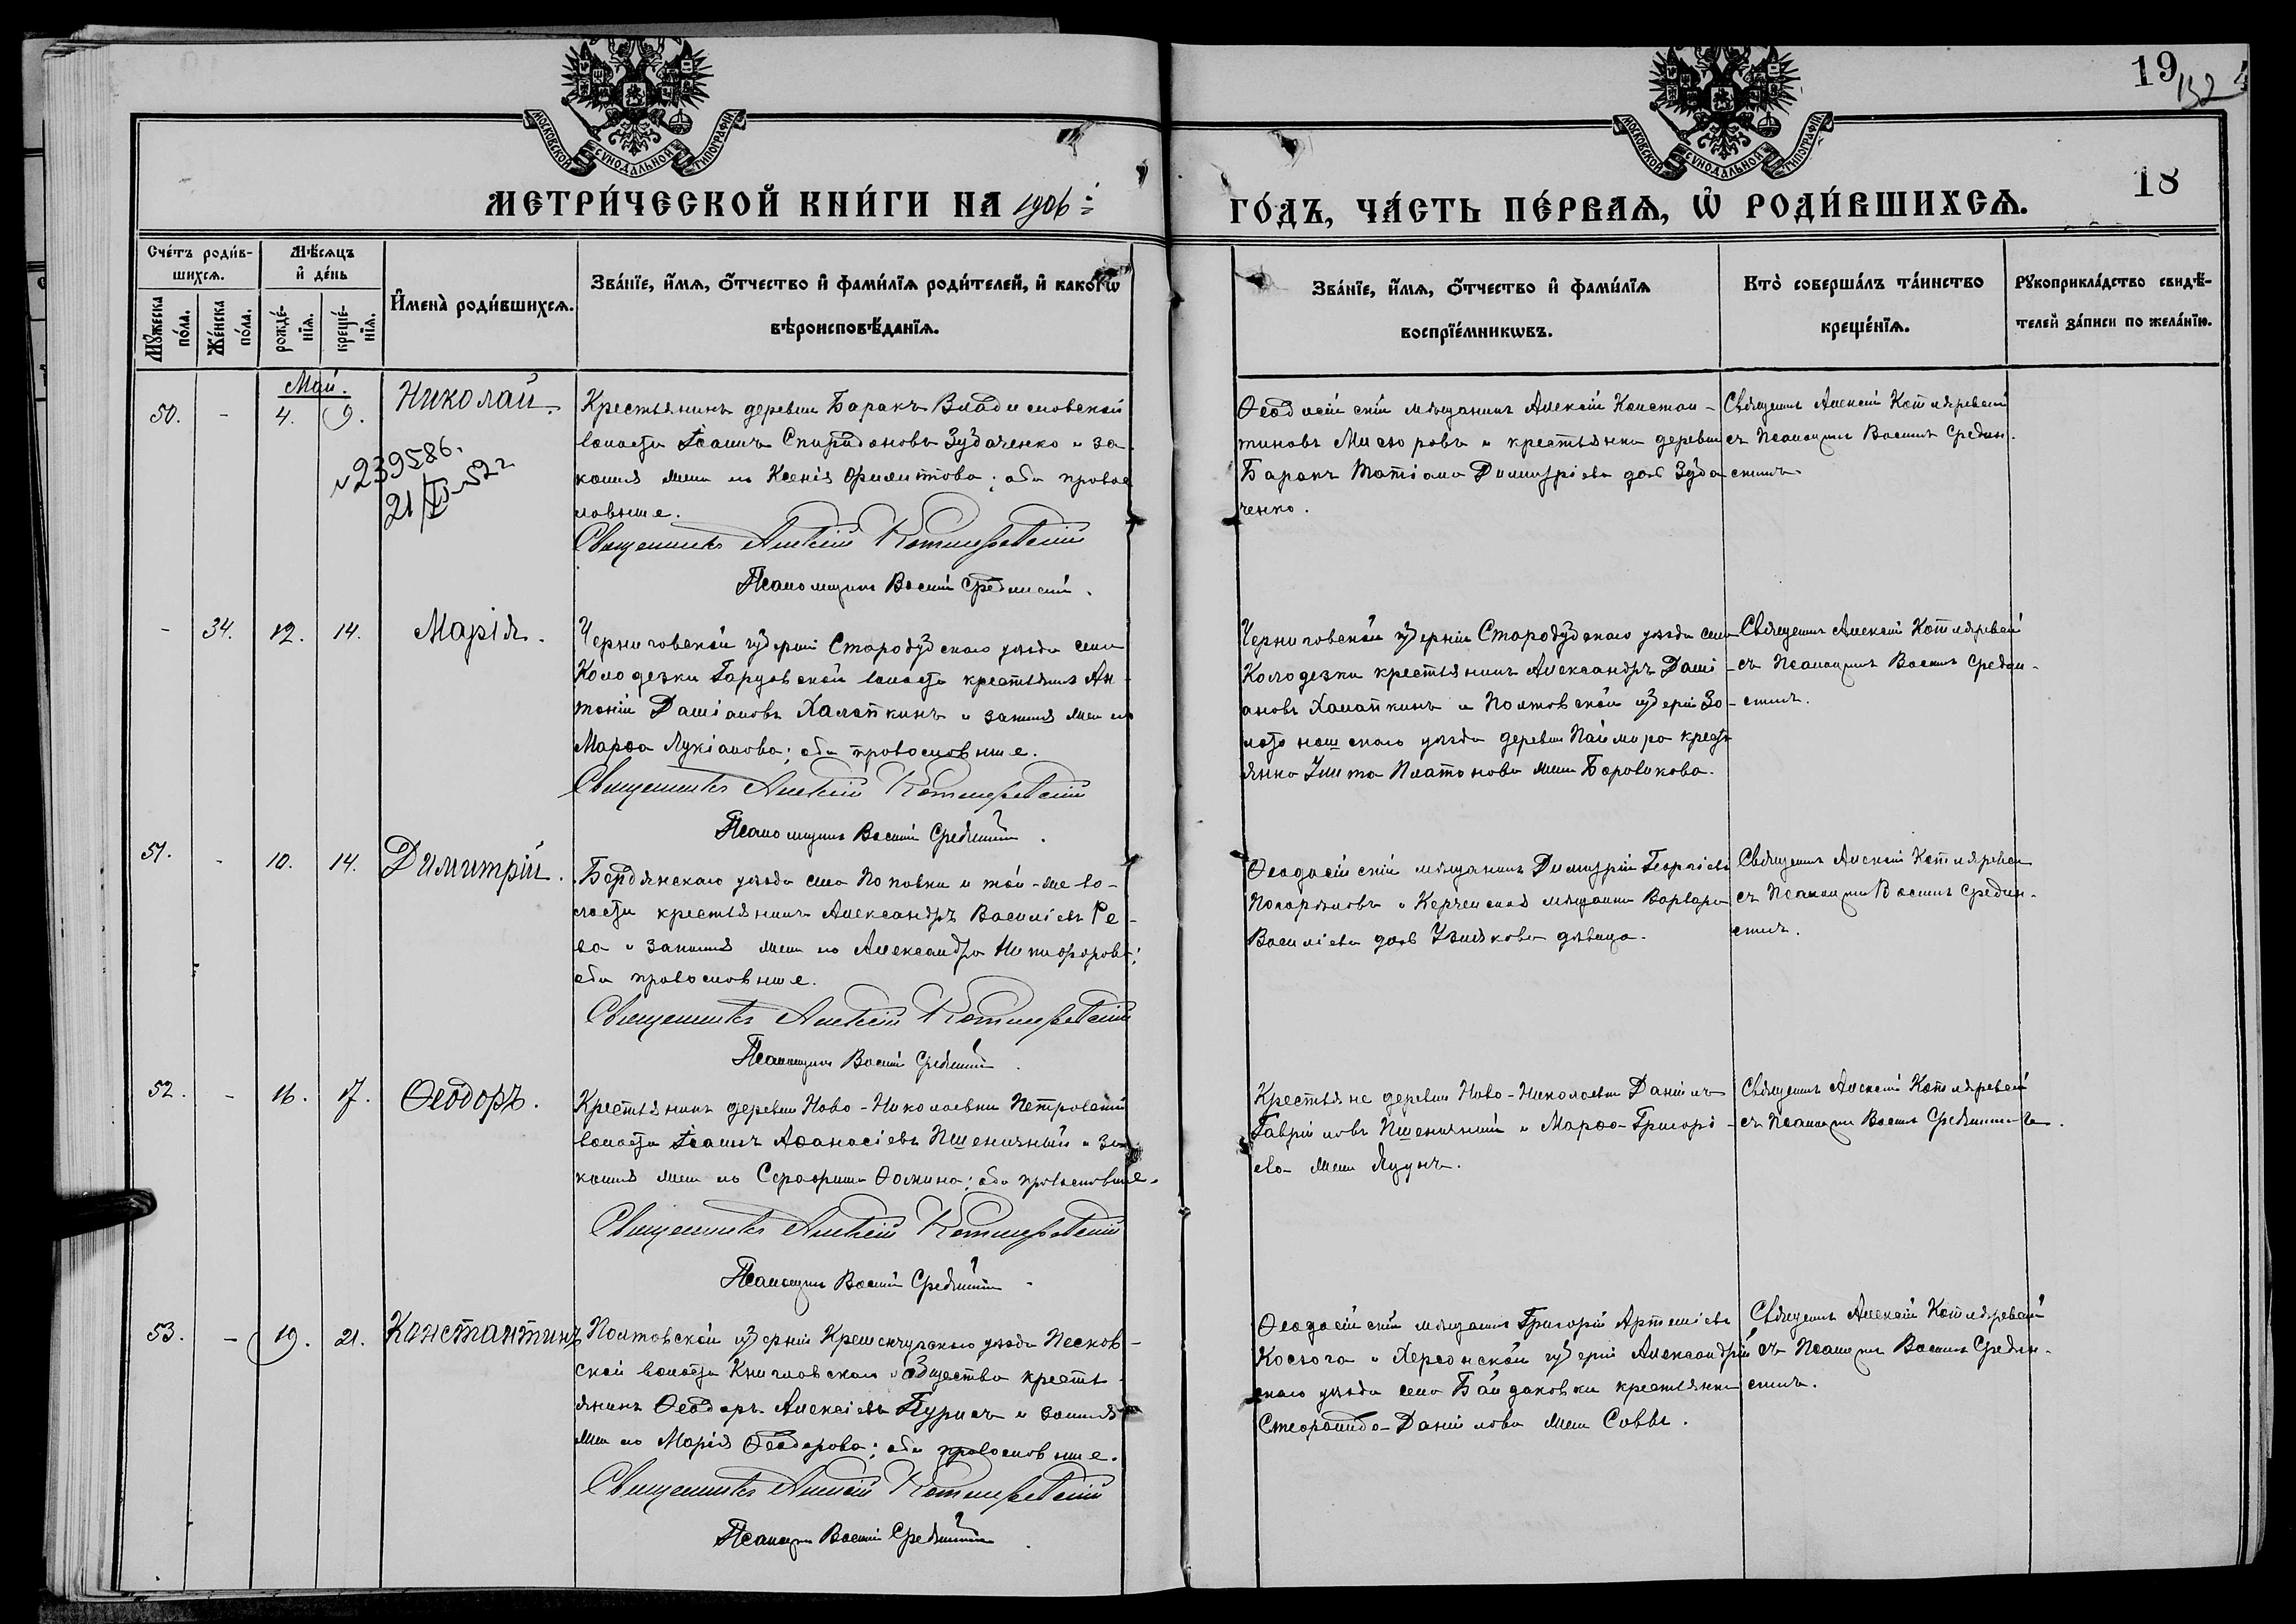 19
132
18
МОСКОВСКОЙ СѴНОДАЛЬНОЙ ТИПОГРАФІИ
МЕТРИ́ЧЕСКОЙ КНИ́ГИ НА 1906
МОСКОВСКОЙ СѴНОДАЛЬНОЙ ТИПОГРАФІИ
ГО́ДЪ, ЧА́СТЬ ПЕ́РВАѦ, Ѡ РОДИ́ВШИХСѦ.
Сче́тъ роди́вшихсѧ.
Мꙋ́жеска по́ла.
Же́нска по́ла.
Мѣ́сѧцъ и де́нь
рожде́нїѧ.
креще́нїѧ.
Имена̀ роди́вшихсѧ.
Зва́нїе, и́мѧ, ѻ́тчество и фами́лїѧ роди́телей, и како́гѡ
вѣроисповѣ́данїѧ.
Зва́нїе, и́мѧ, ѻ́тчество и фами́лїѧ
воспрїе́мникѡвъ.
Кто̀ соверша́лъ та́инство
креще́нїѧ.
Рꙋкоприкла́дство свидѣ́-
телей за́писи по жела́нїю.
Май.
50.
-
4.
9.
Николай.
Крестьянинъ деревни Баракъ Владиславской
волости Іоаннъ Спиридоновъ Зубаченко и за-
конная жена его Ксенія Филиппова; оба право-
славные.
Священникъ Алексій Котляревскій
Псаломщикъ Василій Срединскій.
№239586.
21/IV-52г
Ѳеодосійскій мѣщанинъ Алексій Констан-
тиновъ Мисюровъ и крестьянка деревни
Баракъ Татіана Димитріева дочь Зуба
ченко.
Священникъ Алексій Котляревскій
съ Псаломщикомъ Василіемъ Средин-
скимъ.
-
34.
12.
14.
Марія.
Черниговской губерніи Стародубскаго уѣзда села
Колодезки Гарцовской волости крестьянинъ Ан-
тоній Даміановъ Халапкинъ и законная жена его
Марѳа Лукіанова; оба православные.
Священникъ Алексій Котляревскій
Псаломщикъ Василій Срединскій.
Черниговской губерніи Стародубскаго уѣзда села
Колодезки крестьянинъ Александръ Дамі-
ановъ Халапкинъ и Полтовской губерніи Зо-
лотоношскаго уѣзда деревни крестья
янка Улита Платонова жена Боровикова.
Священникъ Алексій Котляревскій
съ Псаломщикомъ Василіемъ Средин-
скимъ.
51.
-
10.
14.
Димитрій.
Бердянскаго уѣзда села Поповки и той-же во-
лости крестьянинъ Александръ Василіевъ Ре-
ва и законная жена его Александра Никифорова;
оба православные.
Священникъ Алексій Котляревскій
Псаломщикъ Василій Срединскій
Ѳеодосійскій мѣщанинъ Димитрій Георгіевъ
и Керченская мѣщанка Варвара
Василіева дочь дѣвица.
Священникъ Алексій Котляревскій
съ Псаломщикомъ Василіемъ Средин-
скимъ.
52.
-
16.
17.
Ѳеодоръ.
Крестьянинъ деревни Ново-Николаевки Петровской
волости Іоаннъ Аѳанасіевъ Пшеничный и за-
конная жена его Серафима Ѳомина; оба православные.
Священникъ Алексій Котляревскій
Псаломщикъ Василій Срединскій
Крестьяне деревни Ново-Николаевки Даніилъ
Гавріиловъ Пшеничный и Марѳа Григорі-
ева жена Яцунъ.
Священникъ Алексій Котляревскій
съ Псаломщикомъ Василіемъ Срединскимъ.
53.
-
19.
21.
Константинъ
Полтовской губерніи Кременчугскаго уѣзда Песков-
ской волости общества кресть-
янинъ Ѳеодоръ Алексіевъ и законная
жена его Марія Ѳеодорова; оба православные.
Священникъ Алексій Котляревскій
Псаломщикъ Василій Срединскій
Ѳеодосійскій мѣщанинъ Григорій Артеміевъ
Косюга и Херсонской губерніи Александрій
скаго уѣзда села Байдаковки крестьянка
Стефанида Даніилова жена Саввы.
Священникъ Алексій Котляревскій
съ Псаломщикомъ Василіемъ Средин-
скимъ.